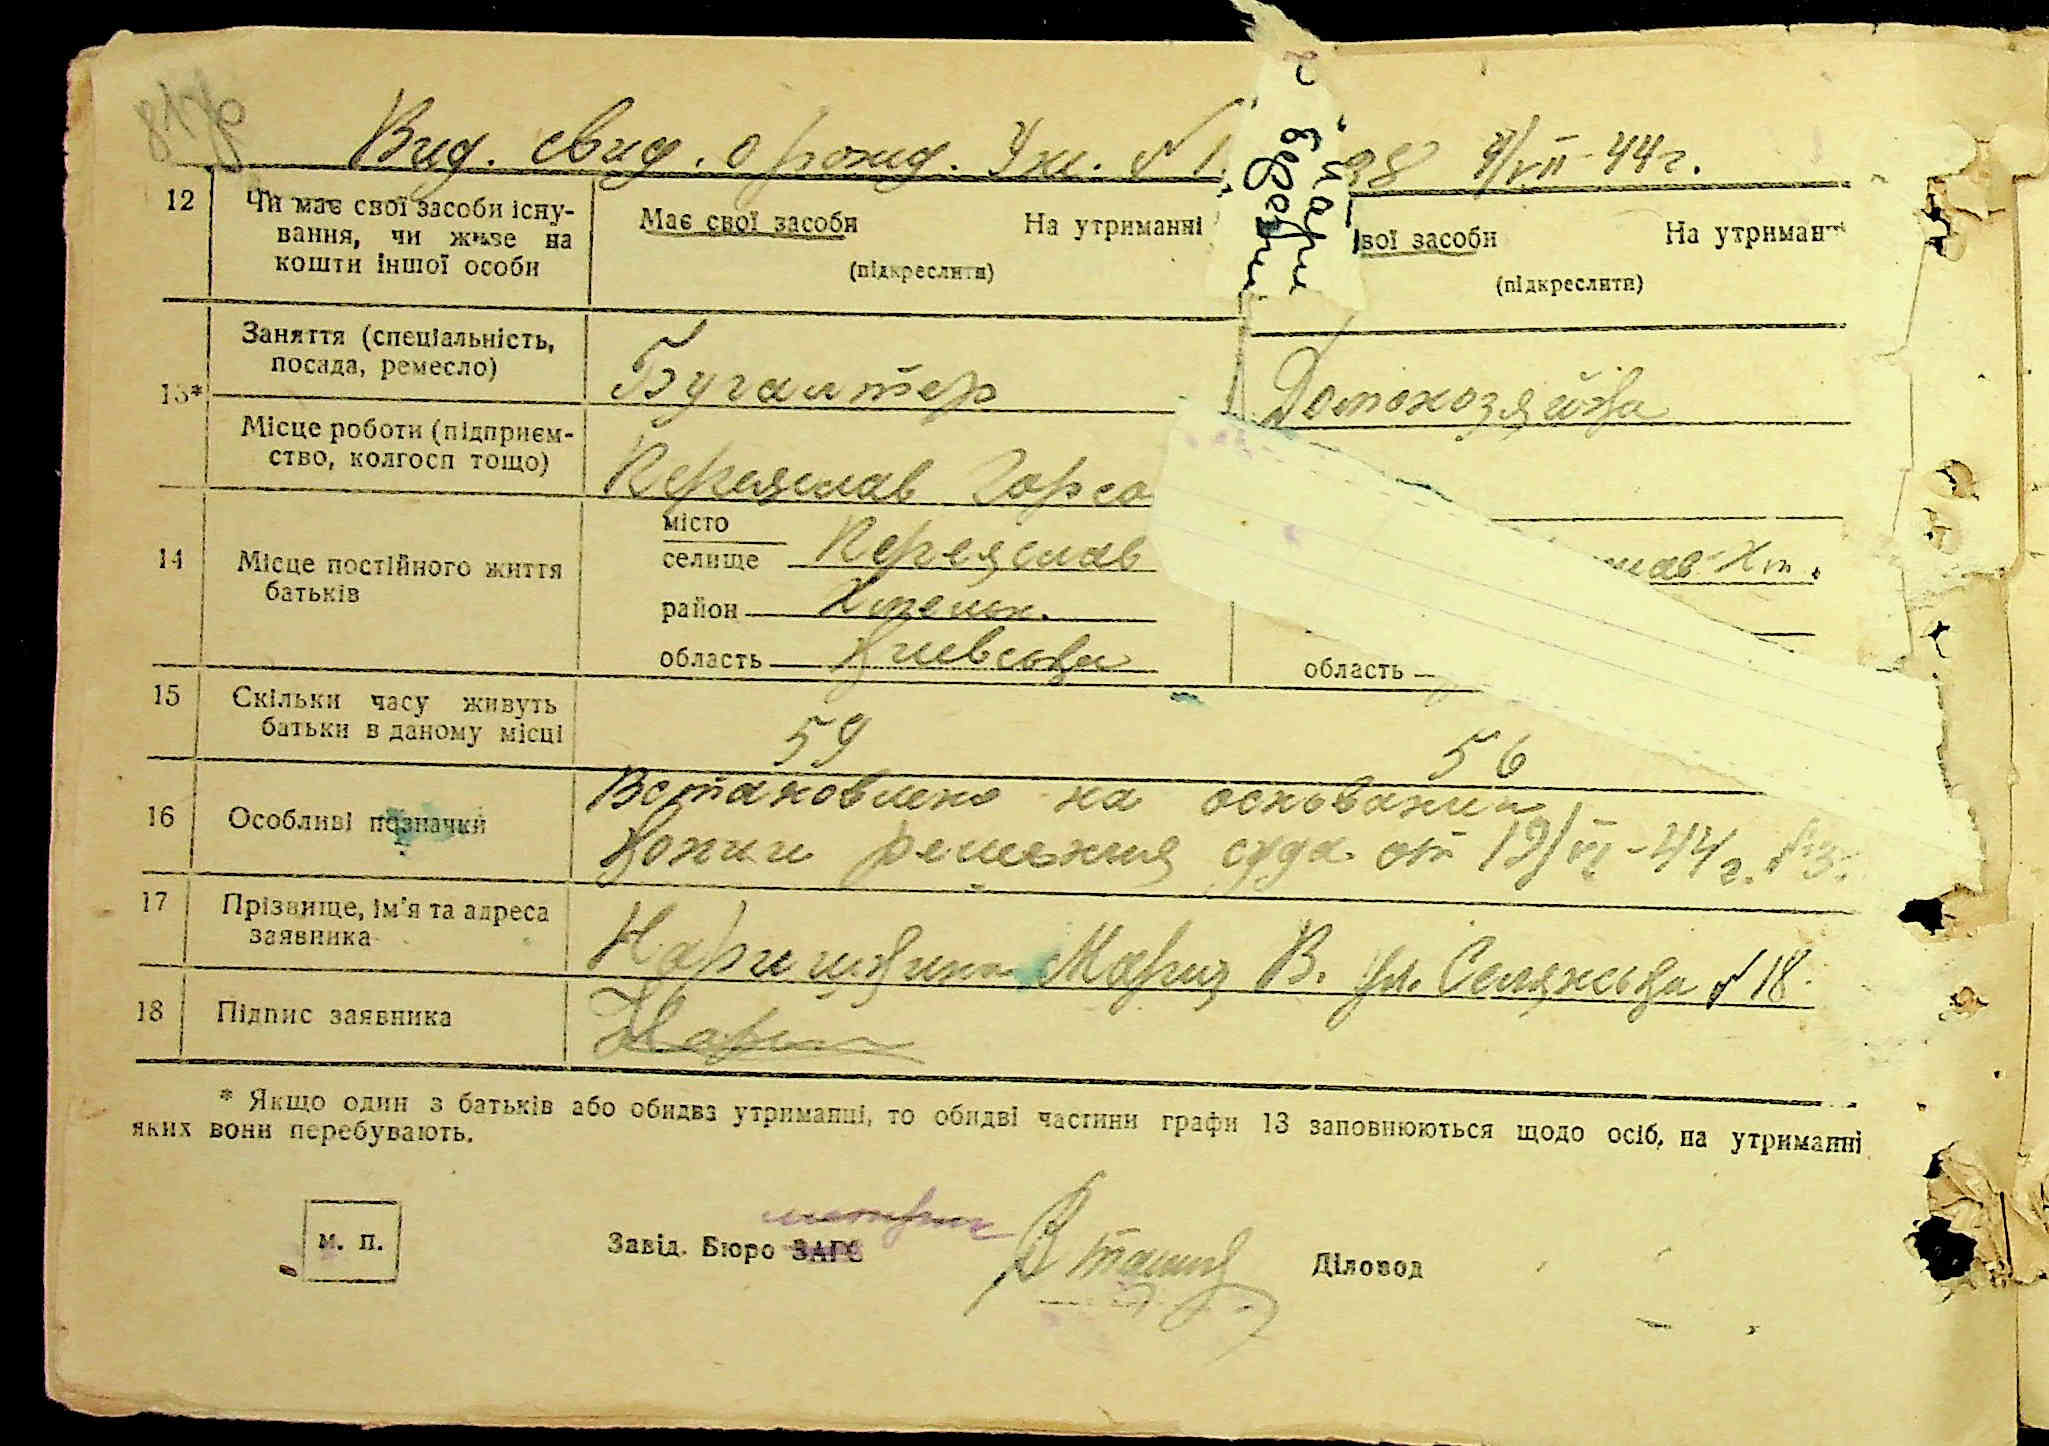 Вид. свид. о рожд. Ук. №1 98 4/VII-44г.
12 Чи має свої засоби існування, чи живе на кошти іншої особи
Має свої засоби На утриманні
(підкреслити)
вої засоби На утриманн
(підкреслити)
13* Заняття (спеціальність,
посада, ремесло)
Бугалтер
Домохозяйка
Місце роботи (підприєм-
ство, колгосп тощо)
Переяслав Горсо
14 Місце постійного життя
батьків
місто
селище Переяслав
район Хмельн.
область Киевська
лав-Хм.
область
15 Скільки часу живуть
батьки в даному місці
59 56
16 Особливі позначки
Встановлено на основании
Копии решения суда от 19/VI-44г. №3
17 Прізвище, ім'я та адреса
заявника
Марія В. ул. Селянська №18.
18 Підпис заявника
* Якщо один з батьків або обидва утриманці, то обидві частини графи 13 заповнюються щодо осіб, на утриманні
яких вони перебувають.
м. п.
Завід. Бюро ЗАГС
Діловод